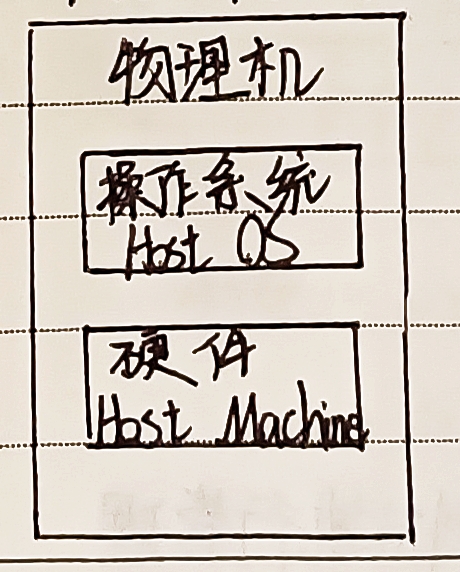 物理机
操作系统
Host OS
硬件
Host Machine